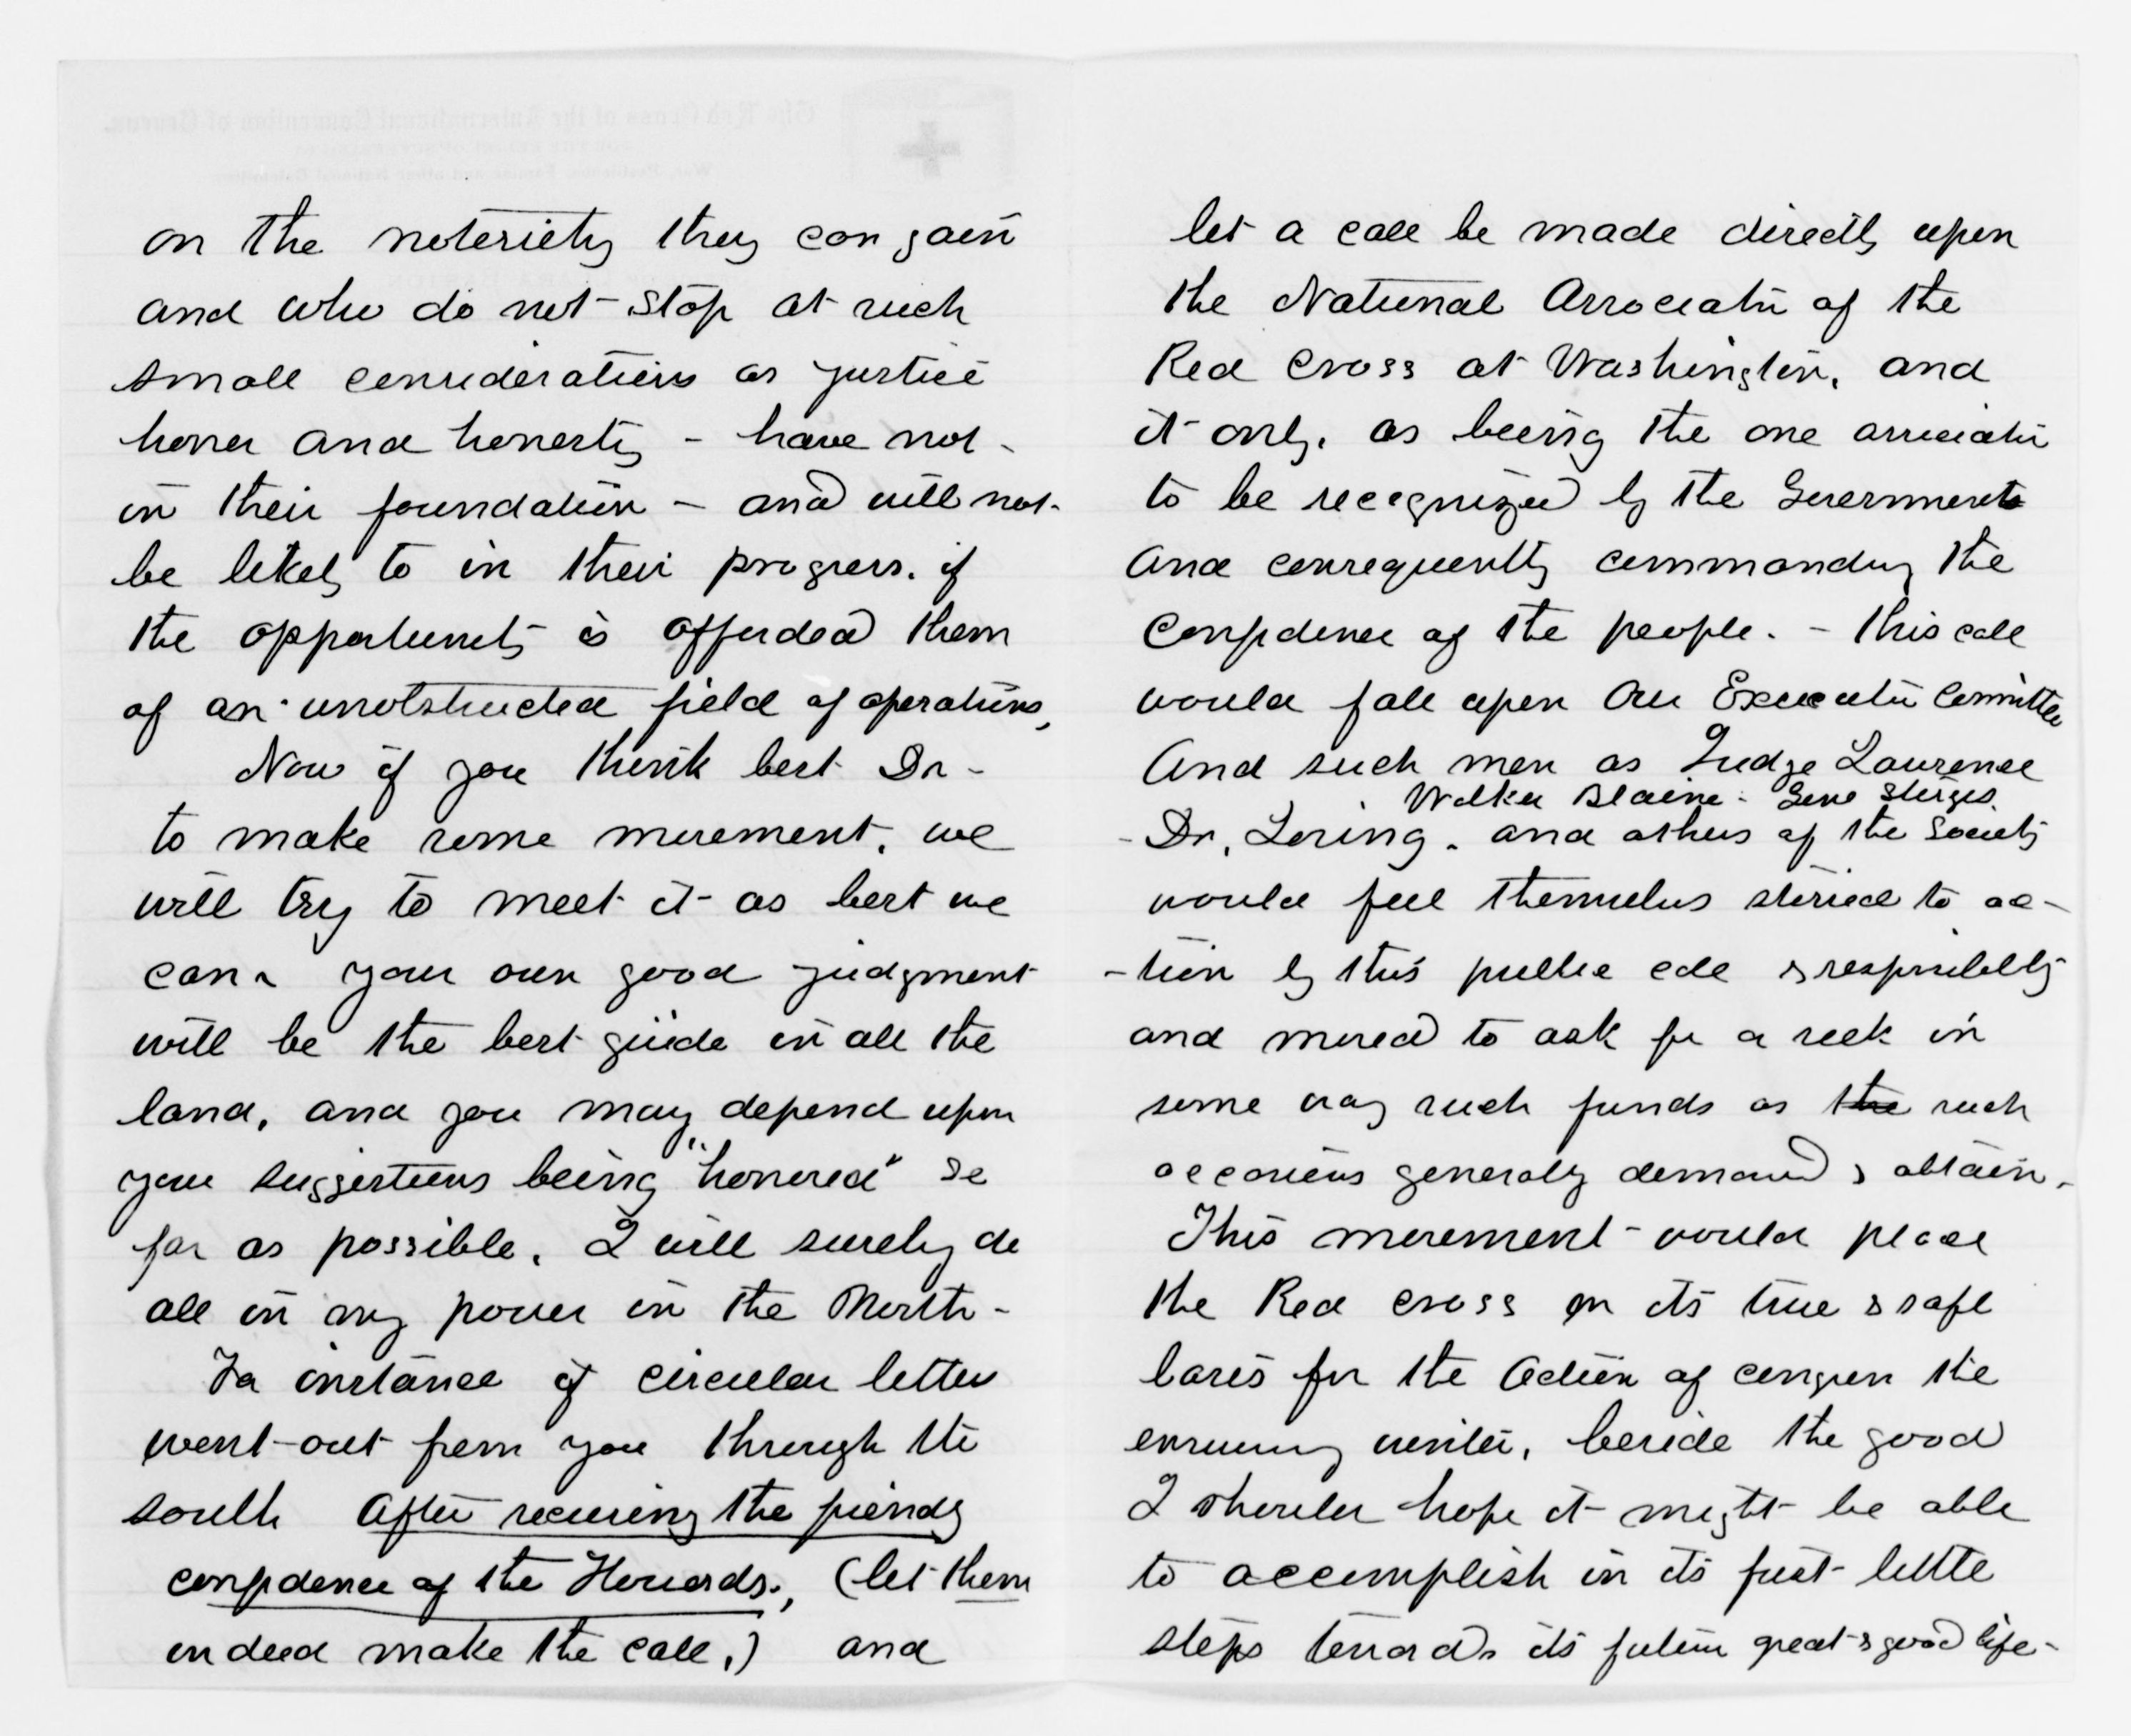 on the notoriety they can gain
and who do not stop at such
small considerations as justice
honor and honesty - have not -
in their foundation - and will not -
be likely to in their progress. if
the opportunity is afforded them
of an unobstructed field of operations,
Now if you think best Dr -
to make some movement, we
will try to meet it as best we
can. your own good judgment
will be the best guide in all the
land, and you may depend upon
your suggestions being "honored" so
far as possible. I will surely do
all in my power in the North -
For instance if circular letters
went out from you through the
south after securing the friendly
confidence of the Howards., (let them
indeed make the call,) and
let a call be made directly upon
the National Association of the
Red Cross at Washington, and
it only, as being the one association
to be recognized by the Government
and consequently commanding the
confidence of the people. - this call
would fall upon our Executive Committee
And such men as Judge Lawrence
Walker Blaine - Gene Sturges.
- Dr. Loring. and others of the Society
would feel themselves stirred to ac-
-tion by this public call & responsibility
and moved to ask for or seek in
some way such funds as the such
occasions generally demand & obtain.
This movement would place
the Red Cross on its true & safe
basis for the action of congress the
ensuing winter, beside the good
I should hope it might be able
to accomplish in its first little
steps towards its future great & good life -